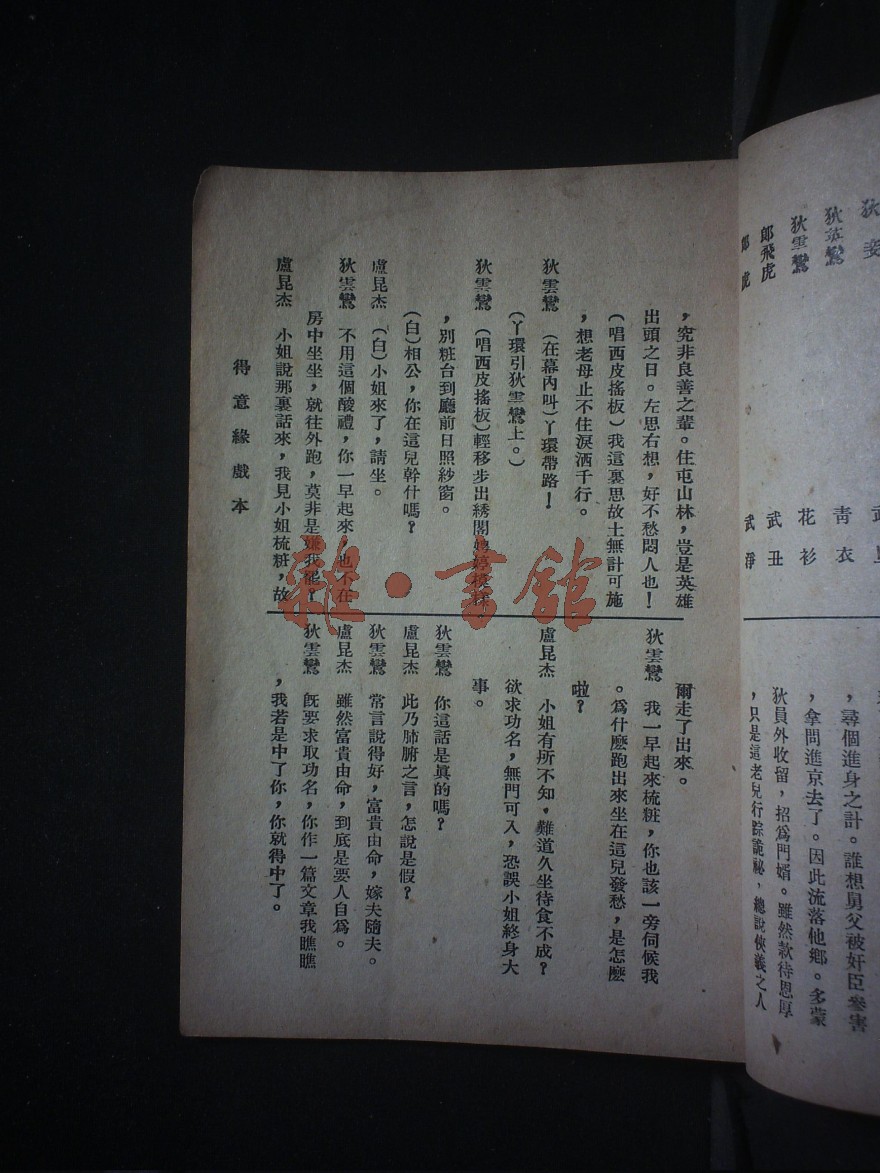 狄雲鸞
郎飛虎
青衣
花衫
武丑
武淨
，尋個進身之計。誰想舅父被奸臣參害
，拿問進京去了。因此流落他鄉。多蒙
狄員外收留，招爲門婿。雖然款待恩厚
，只是這老兒行踪詭祕，總說俠義之人
，究非良善之輩。住屯山林，豈是英雄
出頭之日。左思右想，好不愁悶人也！
（唱西皮搖板）我這裏思故土無計可施
，想老母止不住淚洒千行。
狄雲鸞　（在幕內叫）丫環帶路！
（丫環引狄雲鸞上。）
狄雲鸞　（唱西皮搖板）輕移步出綉閣娉婷模樣
，別粧台到廳前日照紗窗。
（白）相公，你在這兒幹什嗎？
盧昆杰　（白）小姐來了，請坐。
狄雲鸞　不用這個酸禮，你一早起來，也不在
房中坐坐，就往外跑，莫非是嫌我罷？
盧昆杰　小姐說那裏話來，我見小姐梳粧，故
爾走了出來。
狄雲鸞　我一早起來梳粧，你也該一旁伺候我
。爲什麽跑出來坐在這兒發愁，是怎麽
啦？
盧昆杰　小姐有所不知，難道久坐待食不成？
欲求功名，無門可入，恐誤小姐終身大
事。
狄雲鸞　你這話是眞的嗎？
盧昆杰　此乃肺腑之言，怎說是假？
狄雲鸞　常言說得好，富貴由命，嫁夫隨夫。
盧昆杰　雖然富貴由命，到底是要人自爲。
狄雲鸞　旣要求取功名，你作一篇文章我瞧瞧
，我若是中了你，你就得中了。
得意緣戲本
雜·書館